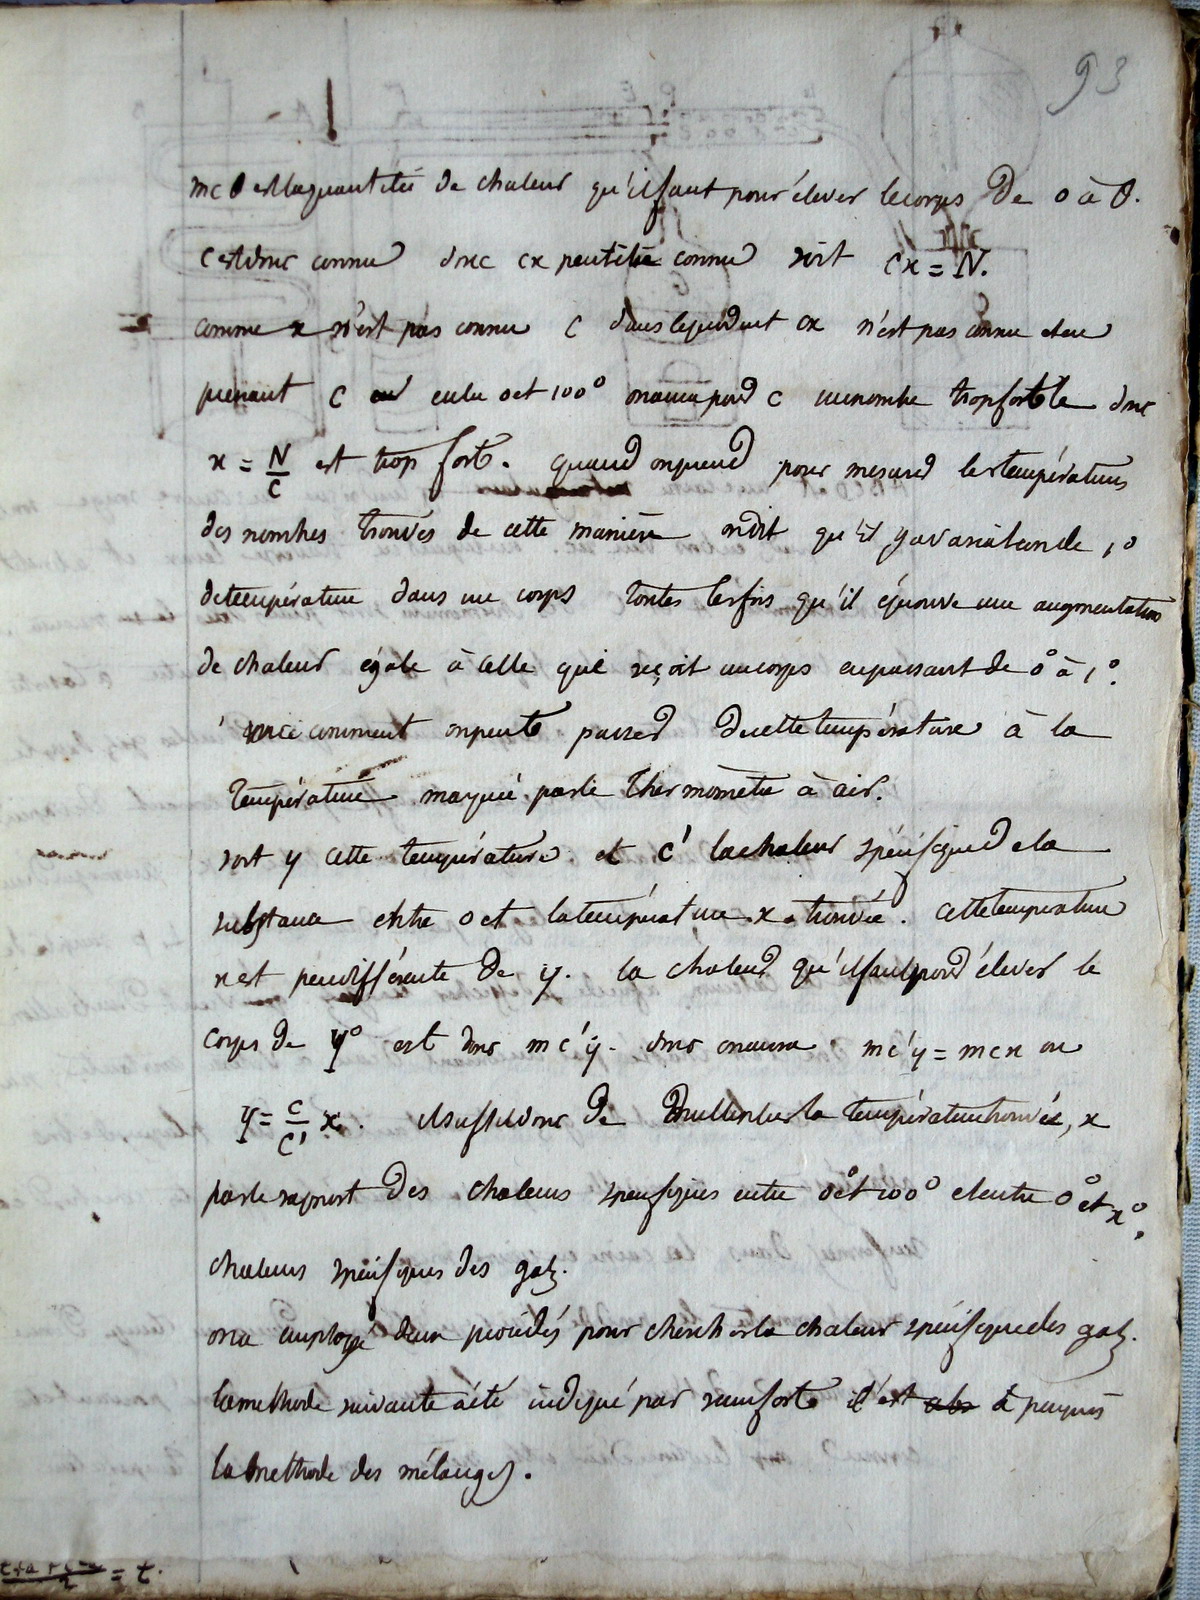 93
mcθ est la quantitée de chaleur qu'il faut pour élever le corps de 0 à θ.
c est donc connu donc cx peut être connu soit cx = N.
comme x n'est pas connu c dans le produit cx n'est pas connu et en
prenant c entre 0 et 100° on aura pour c un nombre trop forte donc
x = N/c est trop fort. quand on prend pour mesurer les températures
des nombres trouvés de cette manière on dit qu'il y a variation de 1°
de température dans un corps toutes les fois qu'il éprouve une augmentation
de chaleur égale à celle que reçoit un corps en passant de 0° à 1°.
voici comment on peut passer de cette température à la
température marquée par le thermomètre à air.
soit y cette température et c' la chaleur spécifique de la
substance entre 0 et la température x trouvée. cette température
x est peu différente de y. la chaleur qu'il faut pour élever le
corps de y° est donc mc'y. donc on aura mc'y = mcx ou
y = c/c' x. il suffit donc de multiplier la température trouvée, x
par le rapport des chaleurs spécifiques entre 0° et 100° et entre 0° et x°.
chaleurs spécifiques des gaz.
on a employé deux procédés pour chercher la chaleur spécifique des gaz.
la méthode suivante a été indiqué par rumfort c'est à peu près
la méthode des mélanges.
= t.